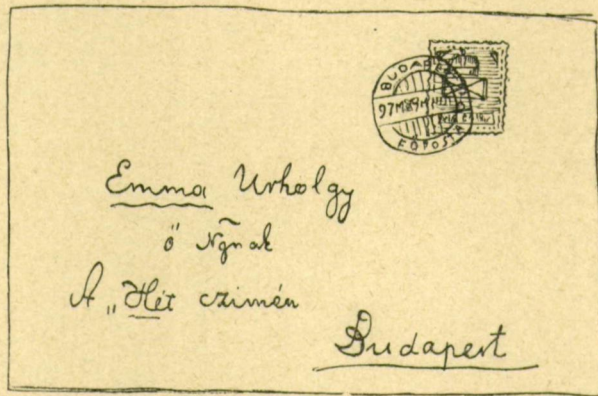 BUDAPEST
FŐPOSTA
Emma Urhölgy
ő Ngnak
A „Hét czimén
Budapest